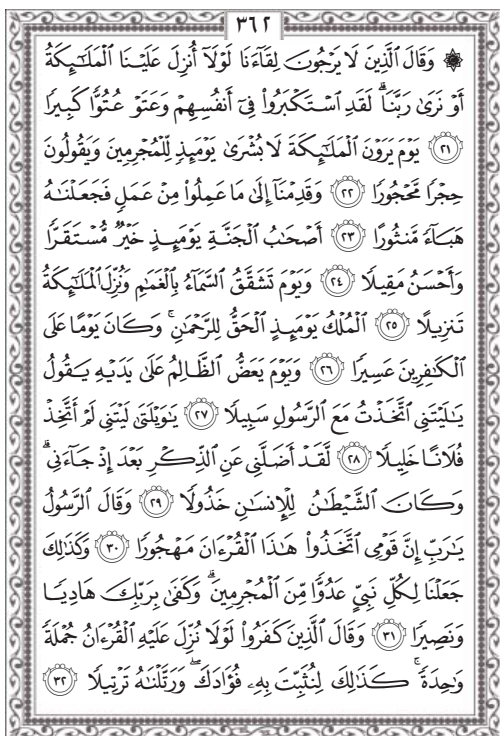 ٣٦٢
۞ وَقَالَ ٱلَّذِينَ لَا يَرْجُونَ لِقَآءَنَا لَوْلَآ أُنزِلَ عَلَيْنَا ٱلْمَلَٰٓئِكَةُ
أَوْ نَرَىٰ رَبَّنَا ۗ لَقَدِ ٱسْتَكْبَرُوا۟ فِىٓ أَنفُسِهِمْ وَعَتَوْ عُتُوًّا كَبِيرًا
﴿٢١﴾ يَوْمَ يَرَوْنَ ٱلْمَلَٰٓئِكَةَ لَا بُشْرَىٰ يَوْمَئِذٍ لِّلْمُجْرِمِينَ وَيَقُولُونَ
حِجْرًا مَّحْجُورًا ﴿٢٢﴾ وَقَدِمْنَآ إِلَىٰ مَا عَمِلُوا۟ مِنْ عَمَلٍ فَجَعَلْنَٰهُ
هَبَآءً مَّنثُورًا ﴿٢٣﴾ أَصْحَٰبُ ٱلْجَنَّةِ يَوْمَئِذٍ خَيْرٌ مُّسْتَقَرًّا
وَأَحْسَنُ مَقِيلًا ﴿٢٤﴾ وَيَوْمَ تَشَقَّقُ ٱلسَّمَآءُ بِٱلْغَمَٰمِ وَنُزِّلَ ٱلْمَلَٰٓئِكَةُ
تَنزِيلًا ﴿٢٥﴾ ٱلْمُلْكُ يَوْمَئِذٍ ٱلْحَقُّ لِلرَّحْمَٰنِ ۚ وَكَانَ يَوْمًا عَلَى
ٱلْكَٰفِرِينَ عَسِيرًا ﴿٢٦﴾ وَيَوْمَ يَعَضُّ ٱلظَّالِمُ عَلَىٰ يَدَيْهِ يَقُولُ
يَٰلَيْتَنِى ٱتَّخَذْتُ مَعَ ٱلرَّسُولِ سَبِيلًا ﴿٢٧﴾ يَٰوَيْلَتَىٰ لَيْتَنِى لَمْ أَتَّخِذْ
فُلَانًا خَلِيلًا ﴿٢٨﴾ لَّقَدْ أَضَلَّنِى عَنِ ٱلذِّكْرِ بَعْدَ إِذْ جَآءَنِى ۗ
وَكَانَ ٱلشَّيْطَٰنُ لِلْإِنسَٰنِ خَذُولًا ﴿٢٩﴾ وَقَالَ ٱلرَّسُولُ
يَٰرَبِّ إِنَّ قَوْمِى ٱتَّخَذُوا۟ هَٰذَا ٱلْقُرْءَانَ مَهْجُورًا ﴿٣٠﴾ وَكَذَٰلِكَ
جَعَلْنَا لِكُلِّ نَبِىٍّ عَدُوًّا مِّنَ ٱلْمُجْرِمِينَ ۗ وَكَفَىٰ بِرَبِّكَ هَادِيًا
وَنَصِيرًا ﴿٣١﴾ وَقَالَ ٱلَّذِينَ كَفَرُوا۟ لَوْلَا نُزِّلَ عَلَيْهِ ٱلْقُرْءَانُ جُمْلَةً
وَٰحِدَةً ۚ كَذَٰلِكَ لِنُثَبِّتَ بِهِۦ فُؤَادَكَ ۖ وَرَتَّلْنَٰهُ تَرْتِيلًا ﴿٣٢﴾